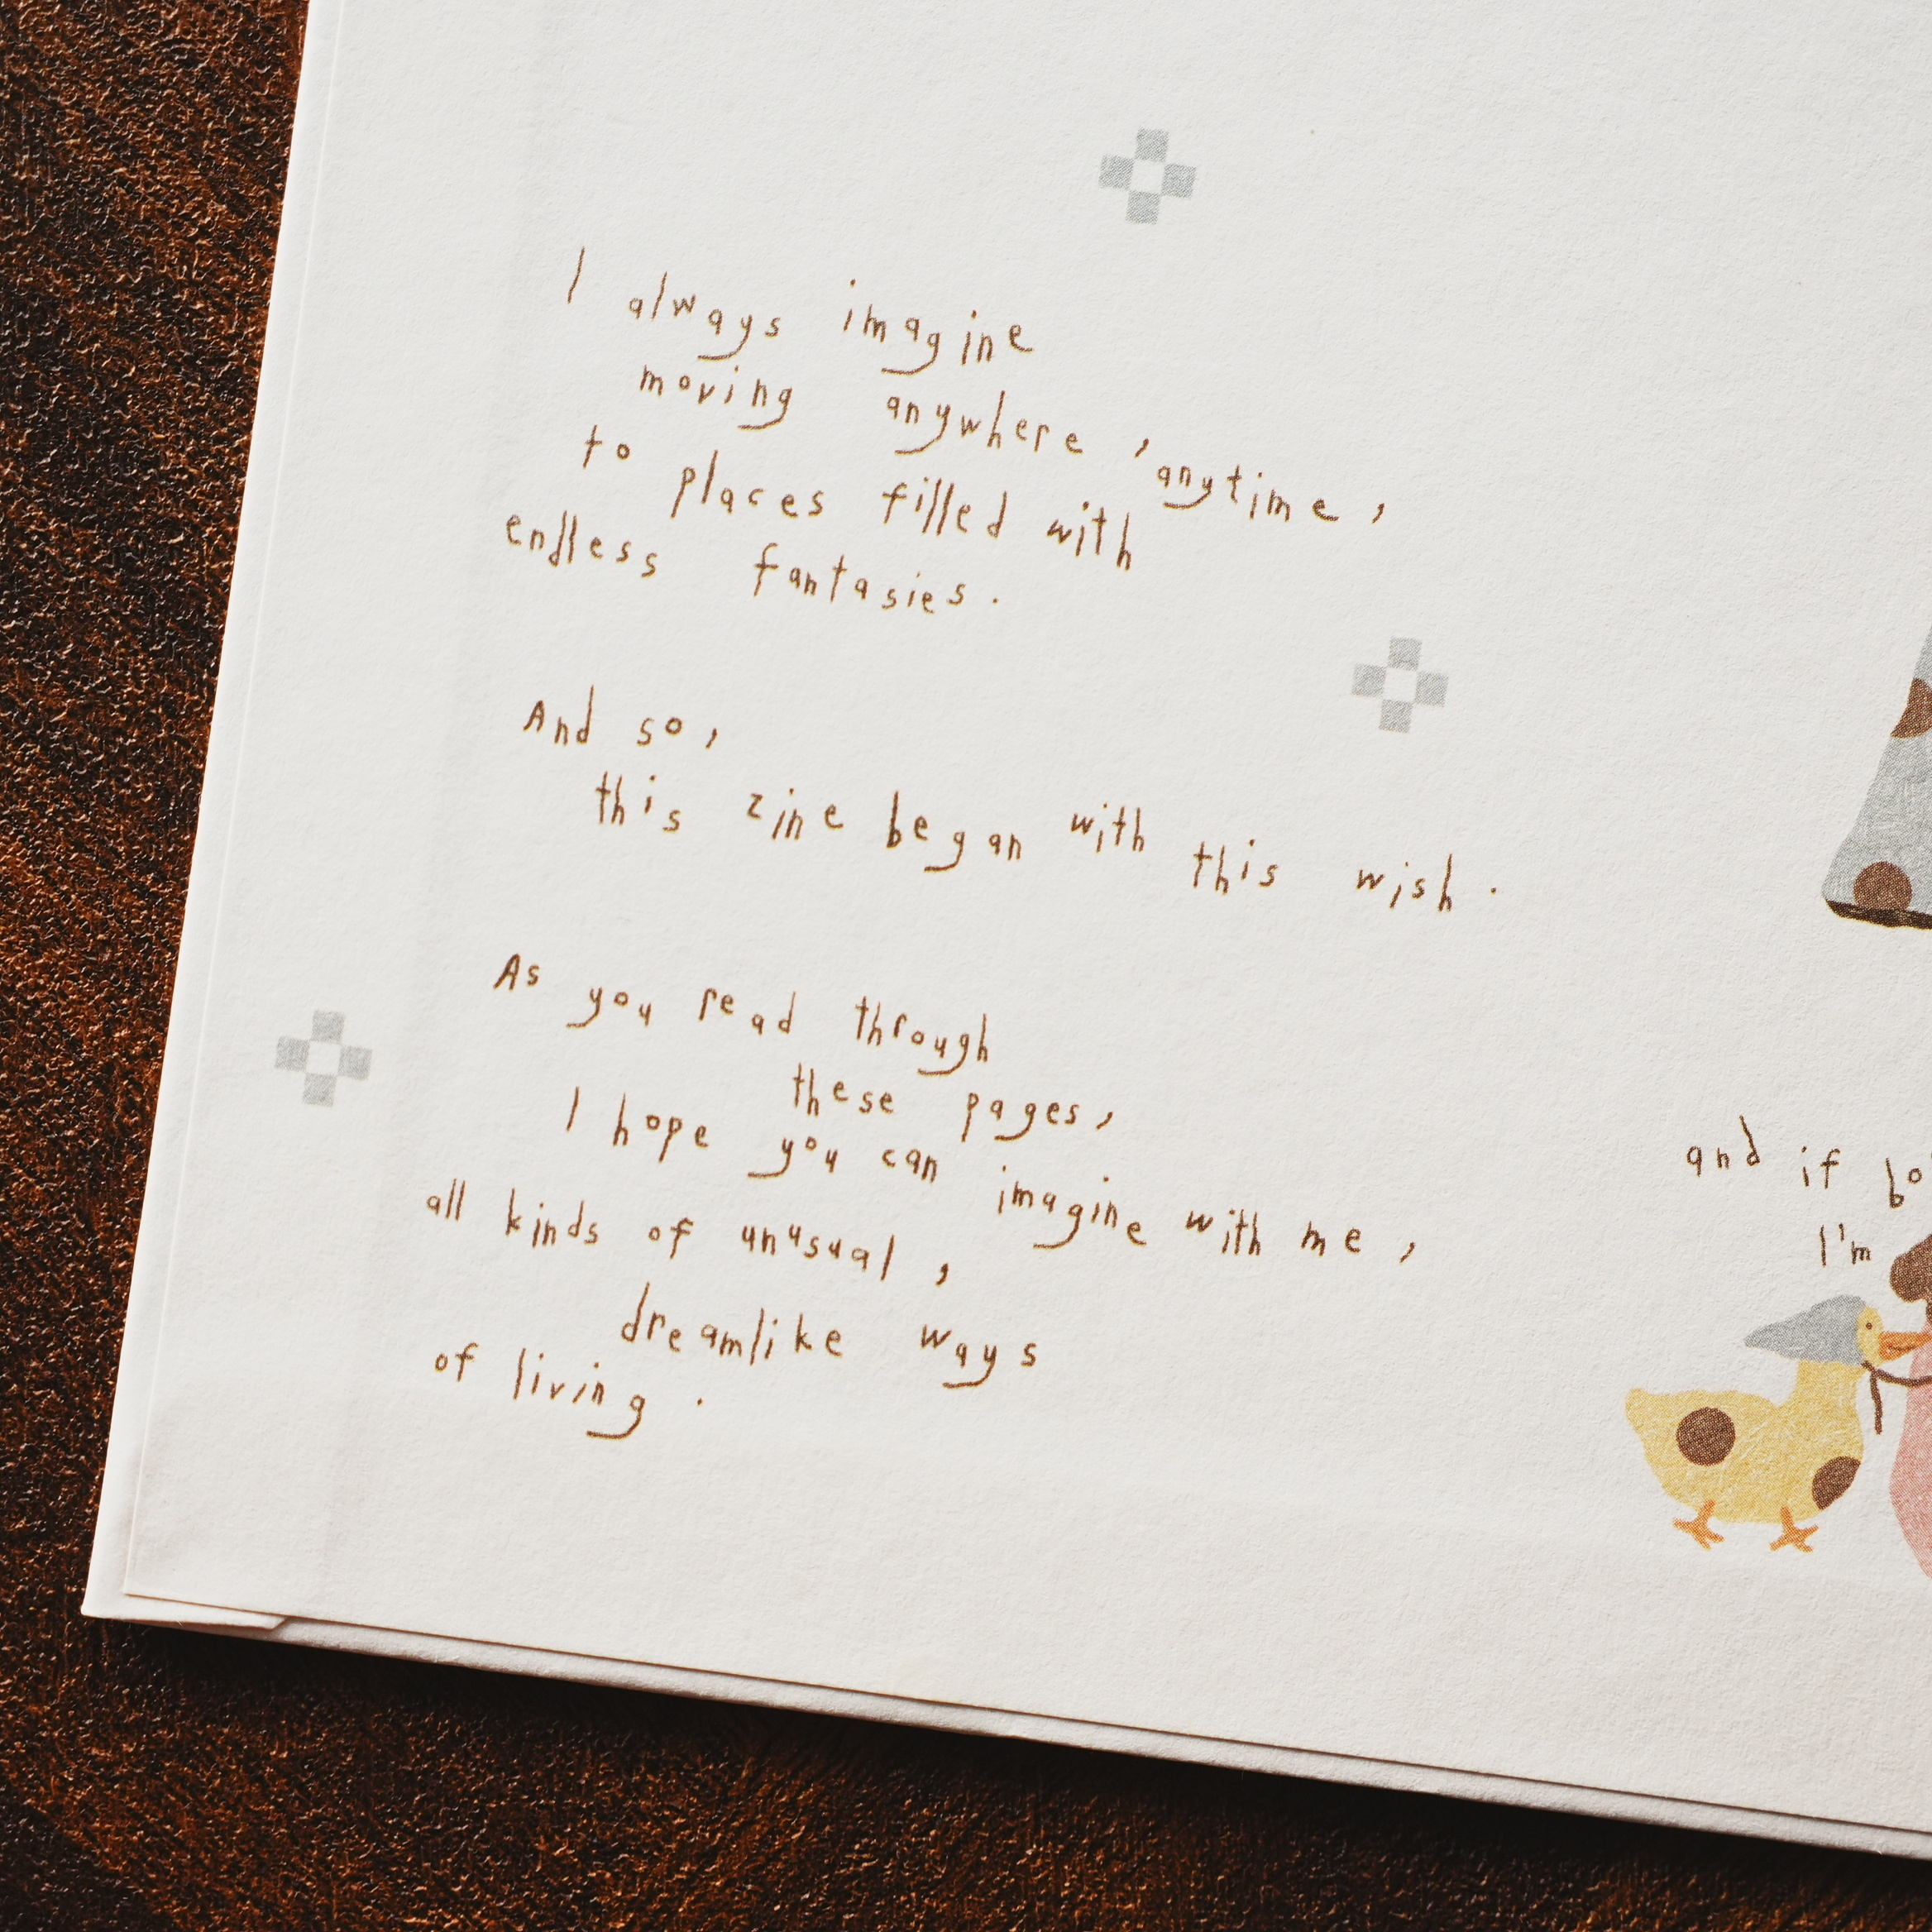 I always imagine
moving anywhere, anytime,
to places filled with
endless fantasies.
And so,
this zine began with this wish.
As you read through
these pages,
I hope you can imagine with me,
all kinds of unusual,
dreamlike ways
of living.
and if
I'm